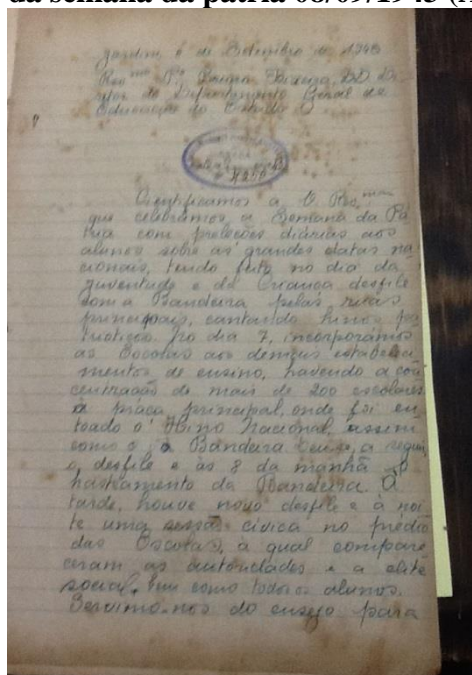 da semana da pátria 08/09/1945
Jardim, de Setembro de 1945
Rev.mo Pe. Teixeira, DD. Di
retor do Departamento Geral de
Educação do Estado
Cientificamos a V. Rev.ma
que celebramos a Semana da Pá
tria com preleções diárias aos
alunos sobre as grandes datas na
cionais, tendo feito no dia da
Juventude e da Criança desfile
com a Bandeira pelas ruas
principais, cantando hinos pa
trióticos. No dia 7, incorporámos
as Escolas aos demais estabeleci
mentos de ensino, havendo a con
centração de mais de 200 escolares
à praça principal, onde foi en
toado o Hino Nacional, assim
como o à Bandeira a seguir
o desfile e às 8 da manhã o
hasteamento da Bandeira. À
tarde, houve novo desfile e à noi
te uma sessão cívica no prédio
das Escolas, à qual compare
ceram as autoridades e a elite
social, bem como todos os alunos.
Servimo-nos do ensejo para